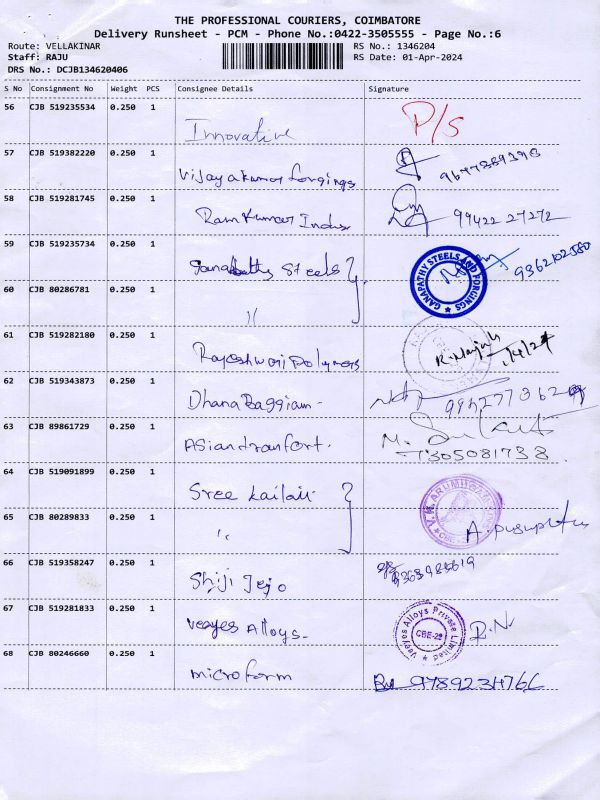 THE PROFESSIONAL COURIERS, COIMBATORE
Delivery Runsheet - PCM - Phone No.:0422-3505555 - Page No.:6
Route: VELLAKINAR RS No.: 1346204
Staff: RAJU RS Date: 01-Apr-2024
DRS No.: DCJB134620406
S No Consignment No Weight PCS Consignee Details Signature
56 CJB 519235534 0.250 1 Innovative P/S
57 CJB 519382220 0.250 1 Vijayakumar forgings
58 CJB 519281745 0.250 1 Ram Kumar Indus 99422 27272
59 CJB 519235734 0.250 1 Steels GANAPATHY STEELS AND FORGINGS
60 CJB 80286781 0.250 1 "
61 CJB 519282180 0.250 1 Rajeshwari Polymers 1/4/24
62 CJB 519343873 0.250 1 Dhana Baggiam -
63 CJB 89861729 0.250 1 Asiandranfort. 7305081738.
64 CJB 519091899 0.250 1 Sree kailair
65 CJB 80289833 0.250 1 "
66 CJB 519358247 0.250 1 Shiji Jejo
67 CJB 519281833 0.250 1 Veeyes Alloys - Veeyes Alloys Private Limited CBE-29 R.N
68 CJB 80246660 0.250 1 microform